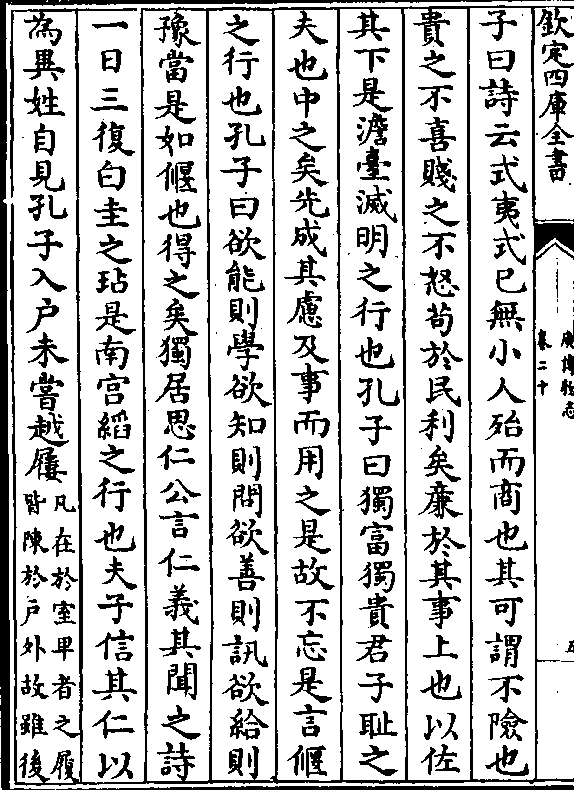 欽定四庫全書
廣博物志
卷二十
五
子曰詩云式夷式已無小人殆而商也其可謂不險也
貴之不喜賤之不怒苟於民利矣廉於其事上也以佐
其下是澹臺滅明之行也孔子曰獨富獨貴君子耻之
夫也中之矣先成其慮及事而用之是故不忘是言偃
之行也孔子曰欲能則學欲知則問欲善則訊欲給則
豫當是如偃也得之矣獨居思仁公言仁義其聞之詩
一日三復白圭之玷是南宫縚之行也夫子信其仁以
為異姓自見孔子入户未嘗越屨凡在於室卑者之履
皆陳於戶外故雖後